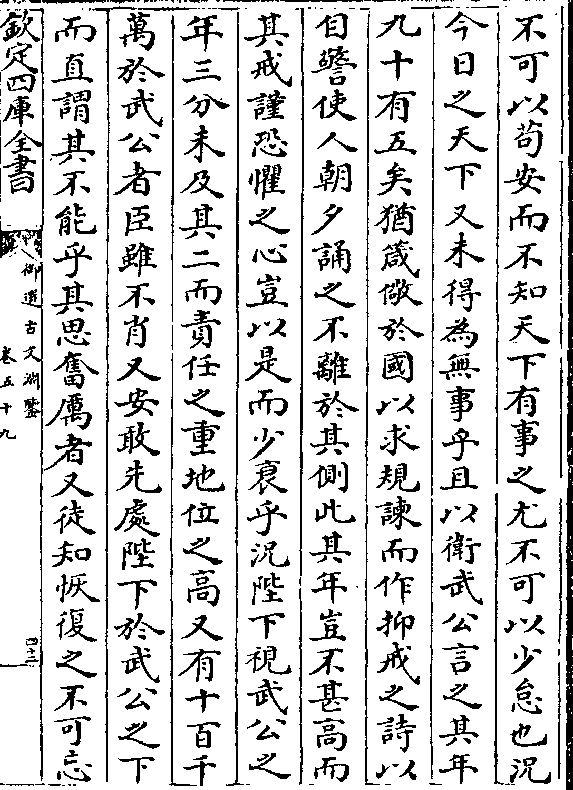 不可以苟安而不知天下有事之尤不可以少怠也況
今日之天下又未得為無事乎且以衛武公言之其年
九十有五矣猶箴儆於國以求規諫而作抑戒之詩以
自警使人朝夕誦之不離於其側此其年豈不甚高而
其戒謹恐懼之心豈以是而少衰乎況陛下視武公之
年三分未及其二而責任之重地位之高又有十百千
萬於武公者臣雖不肖又安敢先處陛下於武公之下
而直謂其不能乎其思奮厲者又徒知恢復之不可忘
欽定四庫全書
御選古文淵鑒
卷五十九
四十三